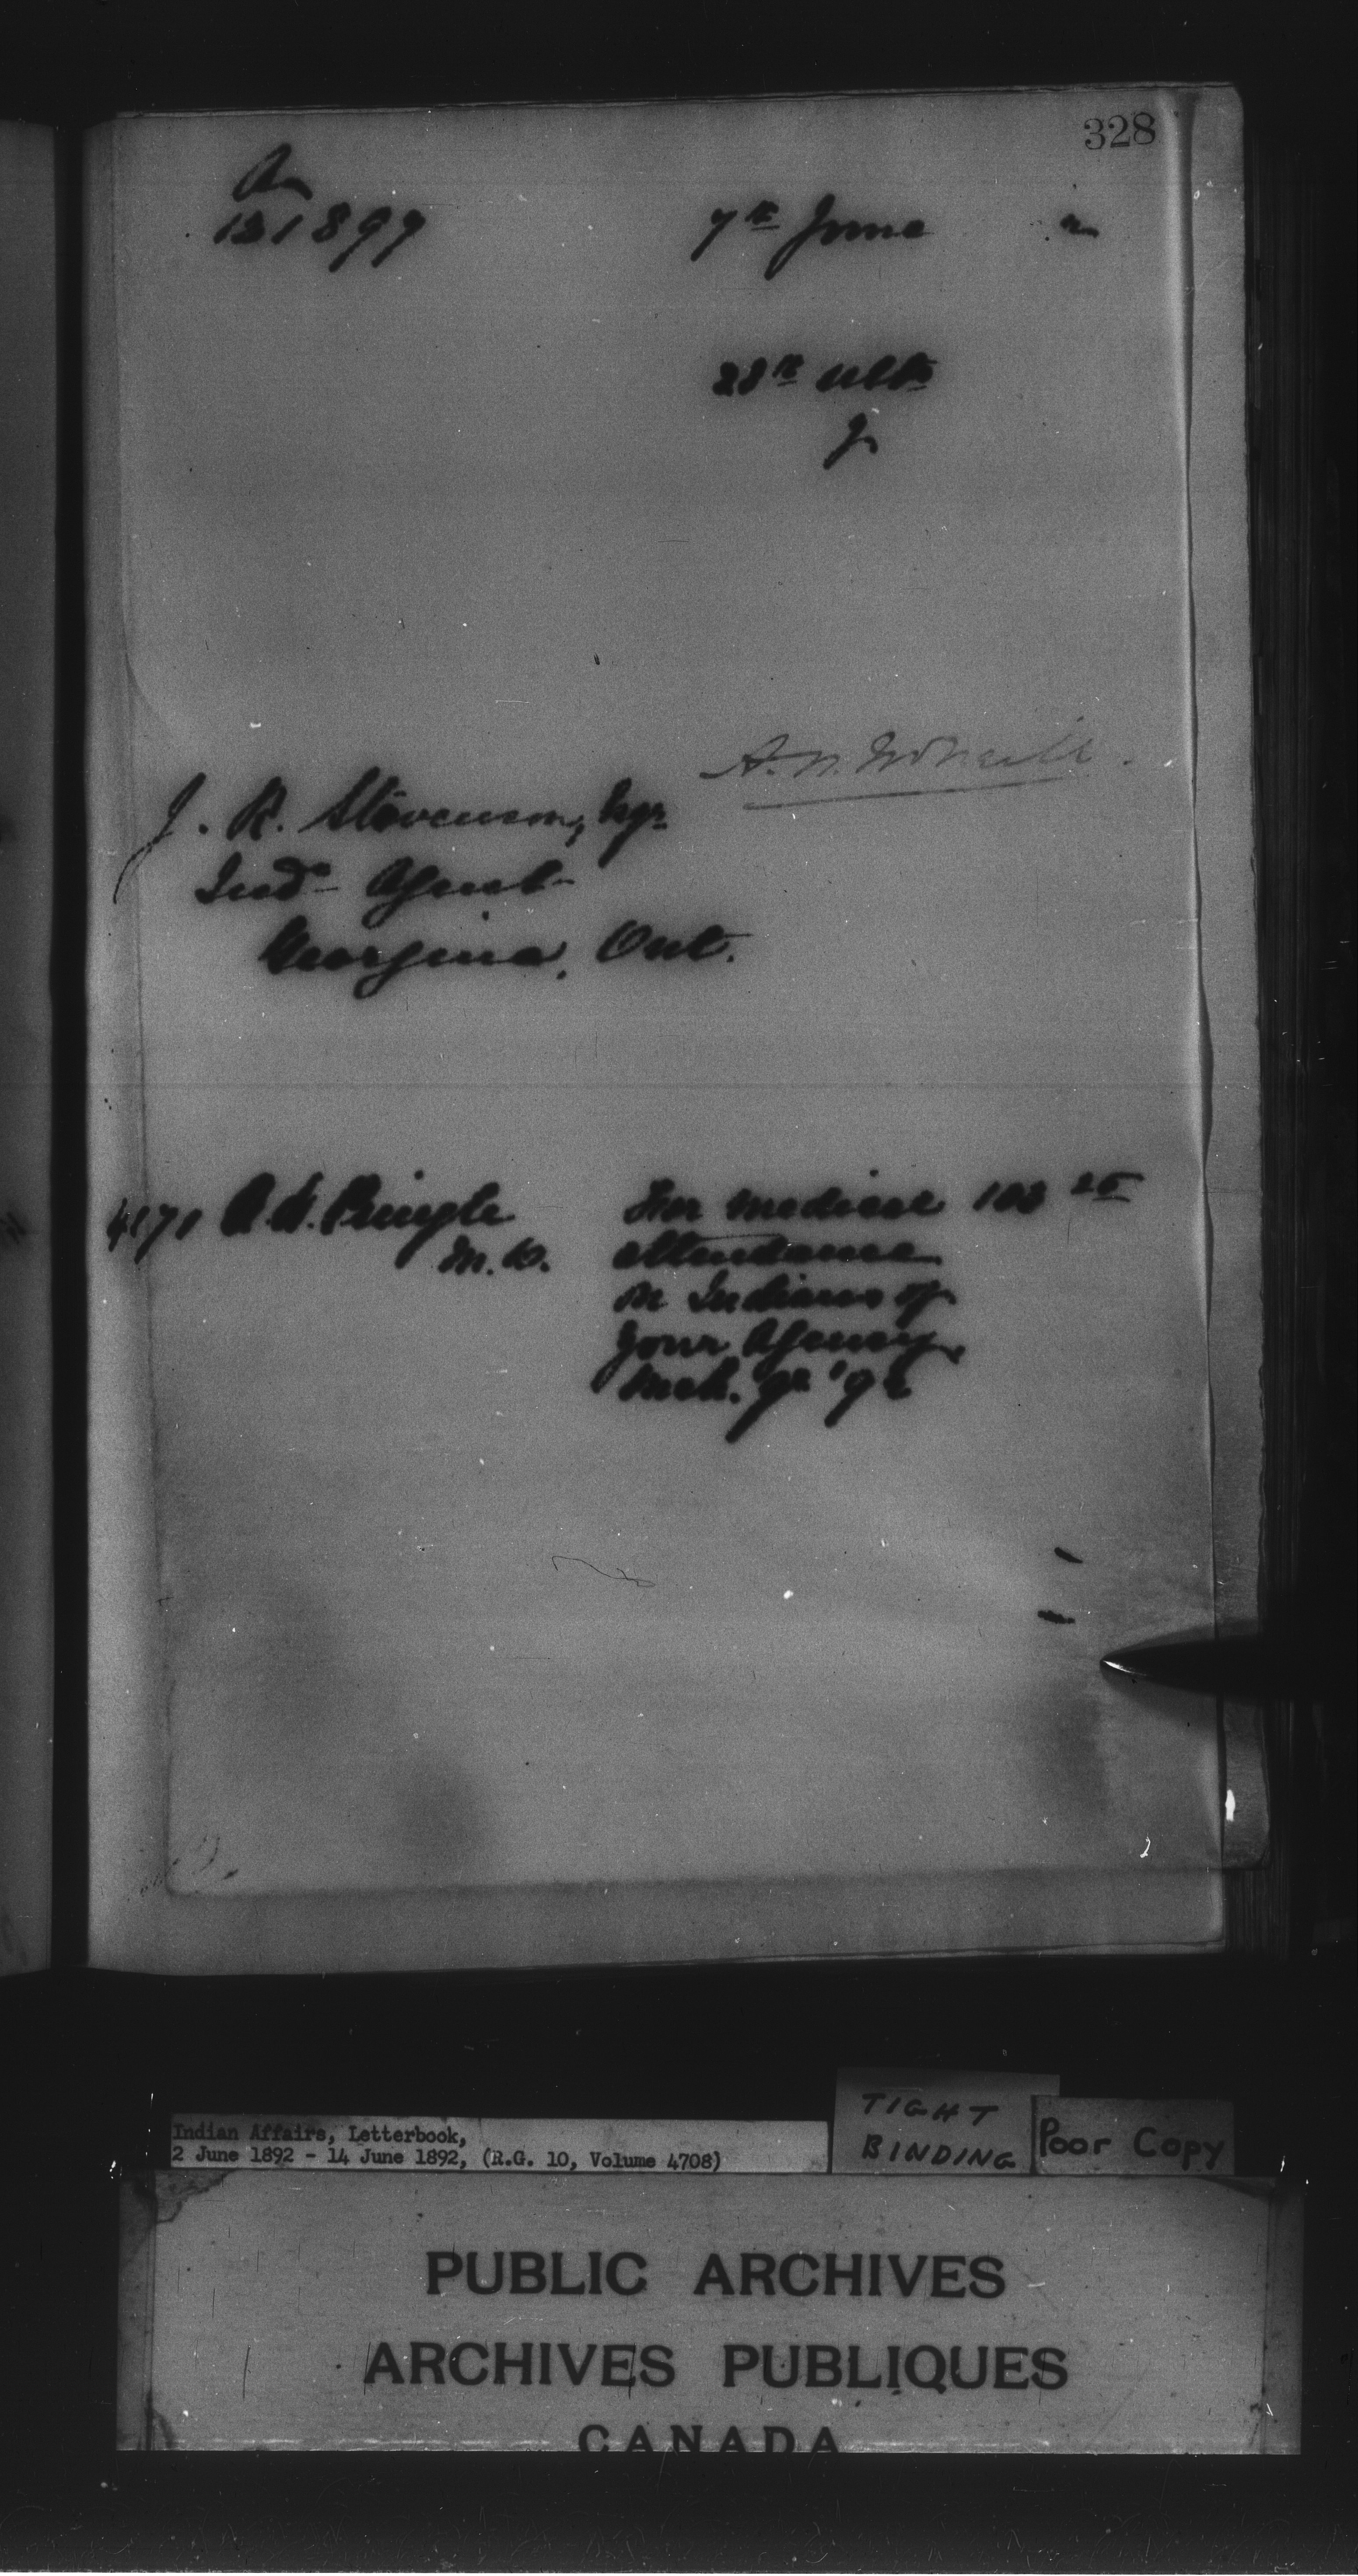 328
A
121899
7th June 2
28th Ulto
J.
A. N. McNeill.
J. R. Stevenson, Esqr.
Indn Agent
Georgina, Ont.
4171 A. H. Pringle For medical 103 25
M. D. attendance
on Indians of
your Agency,
Mch. qr '92
Indian Affairs, Letterbook,
2 June 1892 - 14 June 1892, (R.G. 10, Volume 4708)
TIGHT
BINDING
Poor Copy
PUBLIC ARCHIVES
ARCHIVES PUBLIQUES
CANADA